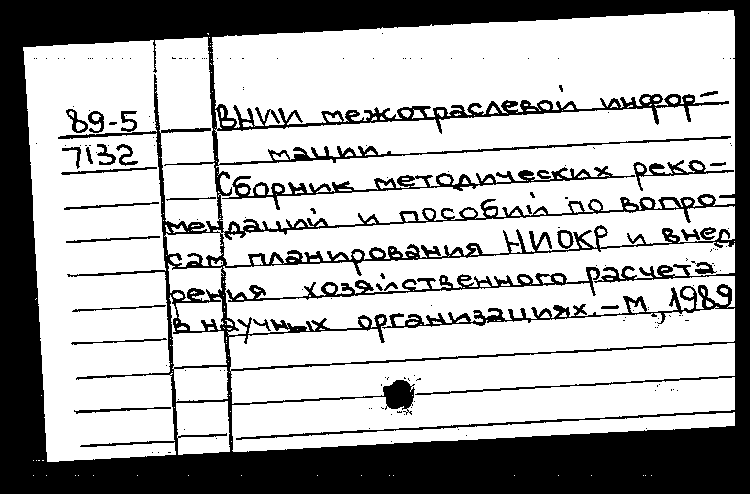 89-5 ВНИИ межотраслевой инфор-
7132 мации.
Сборник методических реко-
мендаций и пособий по вопро-
сам планирования НИОКР и внед
рения хозяйственного расчета
в научных организациях. - М., 1989